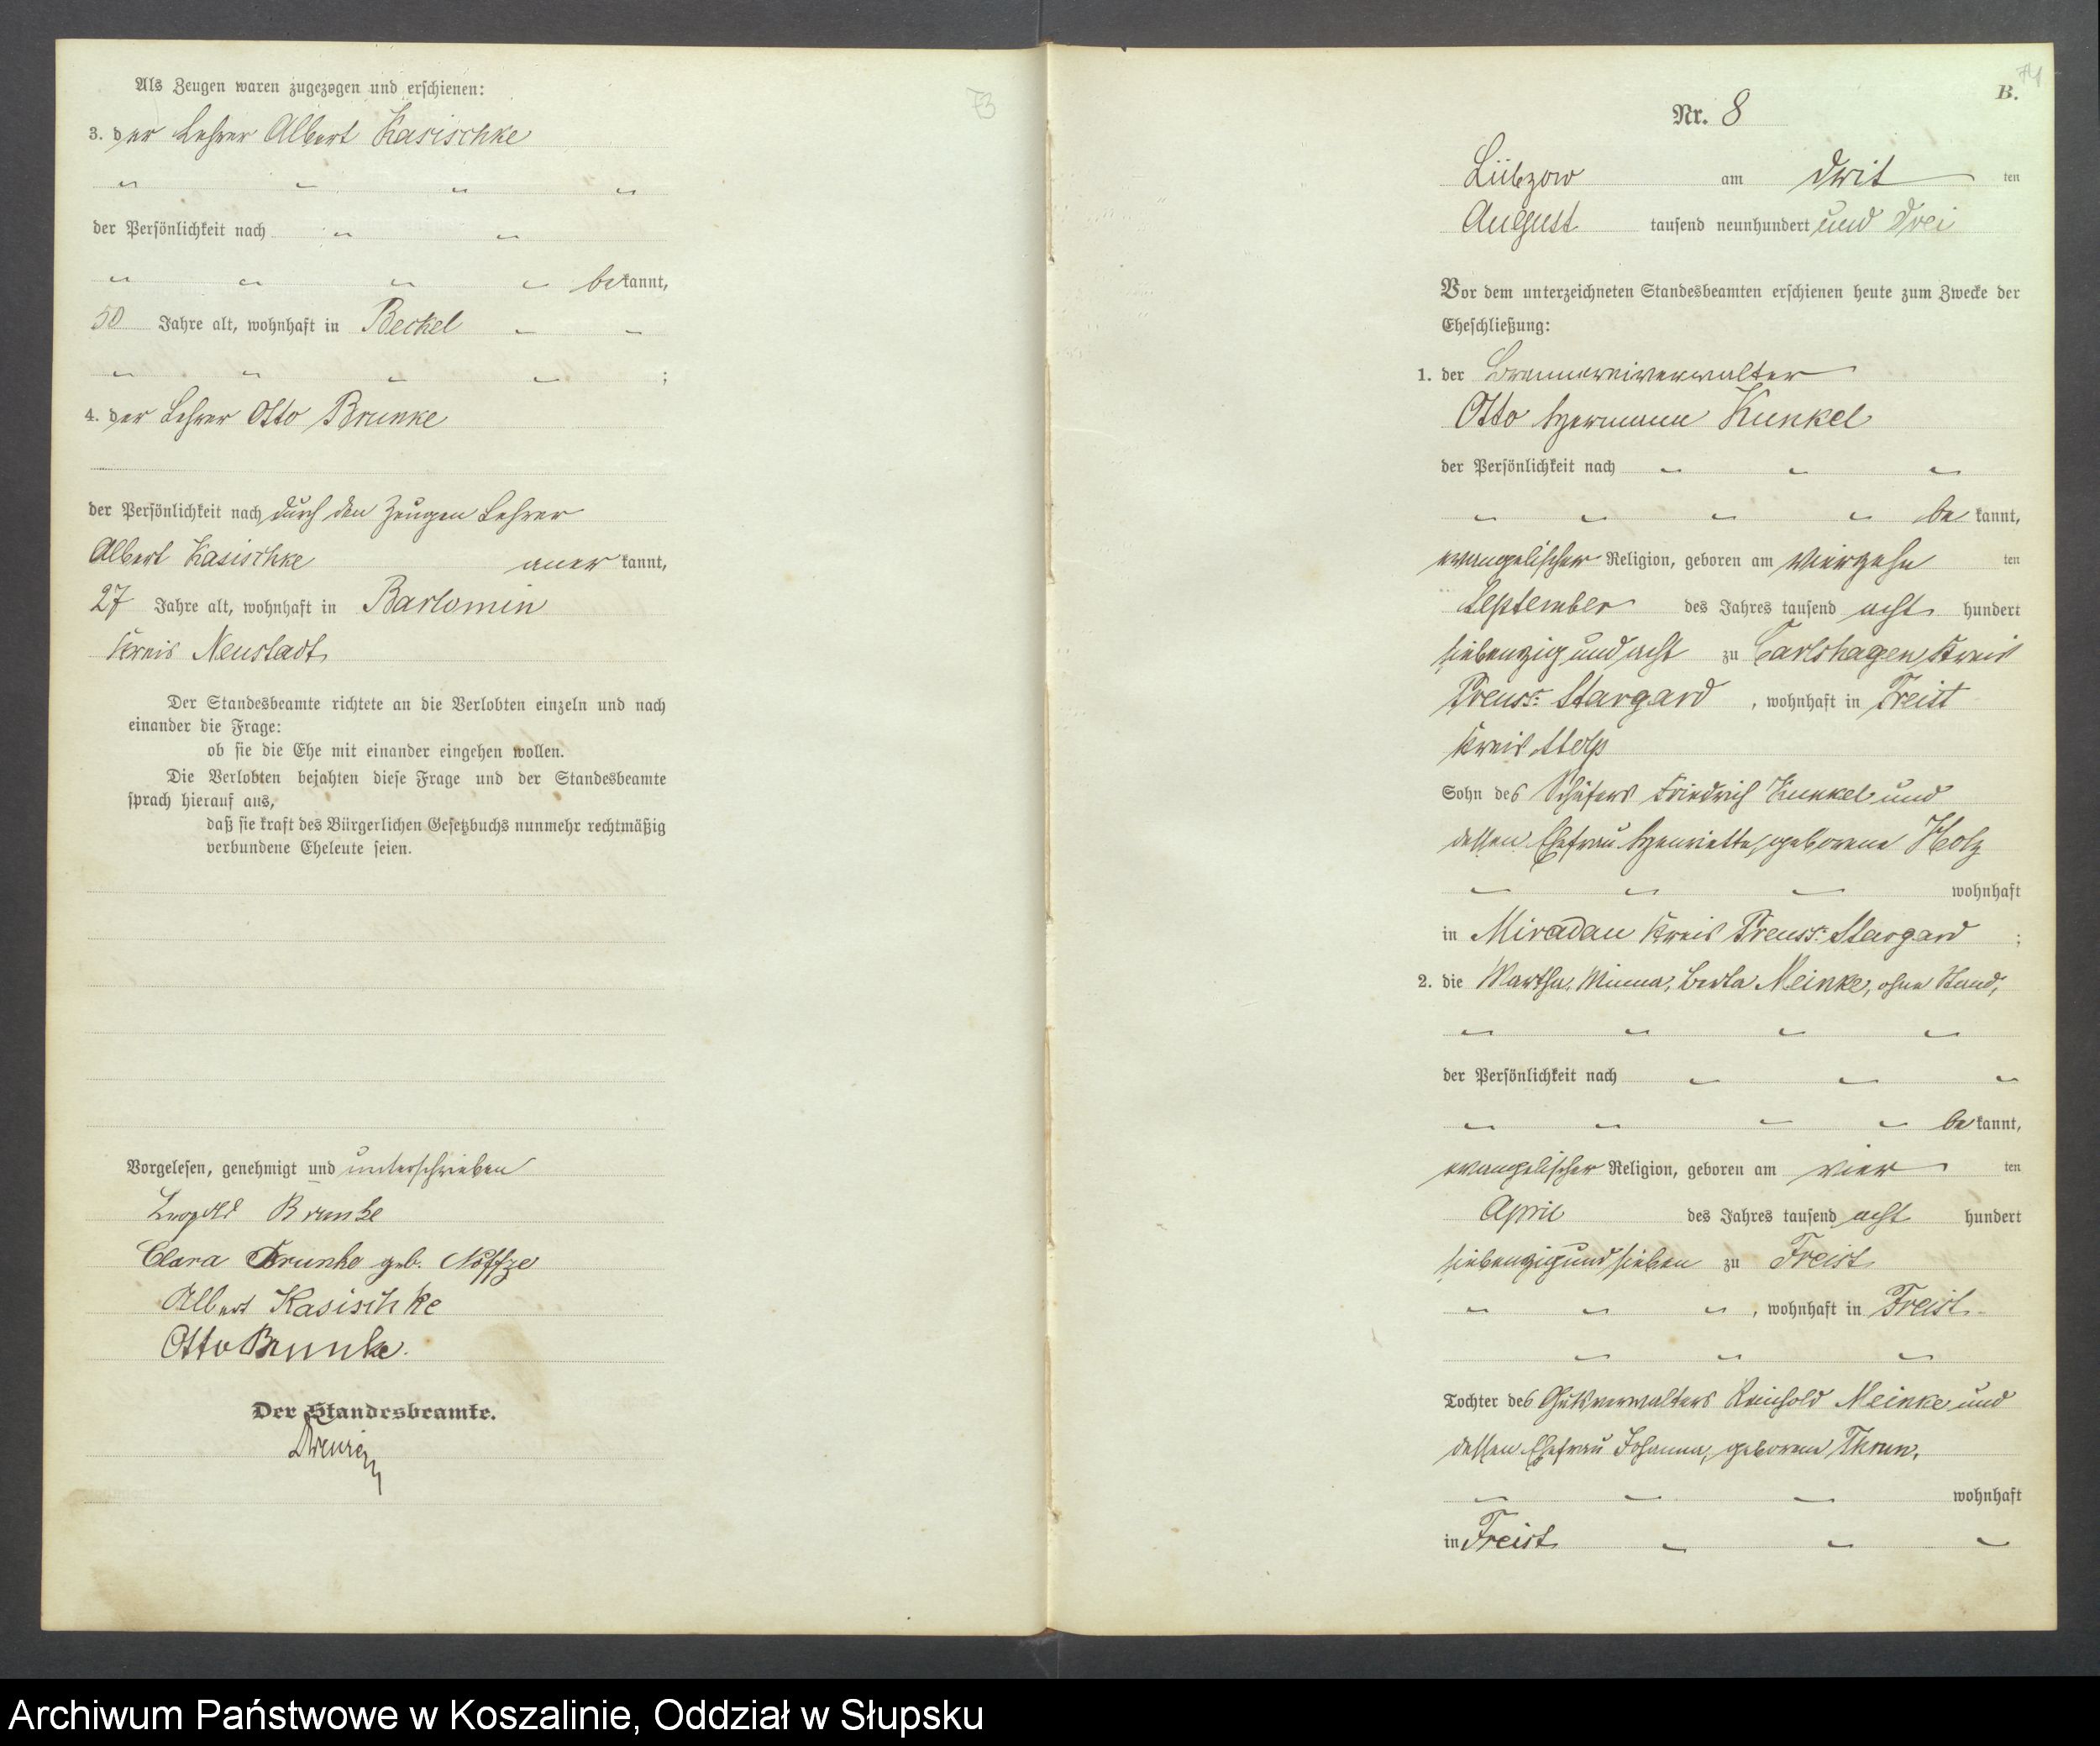 73
Als Zeugen waren zugezogen und erschienen:
3. der Lehrer Albert Kasischke
der Persönlichkeit nach
bekannt,
50 Jahre alt, wohnhaft in Beckel
;
4. der Lehrer Otto Brunke
der Persönlichkeit nach durch den Zeugen Lehrer
Albert Kasischke anerkannt,
27 Jahre alt, wohnhaft in Barlomin
Kreis Neustadt
Der Standesbeamte richtete an die Verlobten einzeln und nach
einander die Frage:
ob sie die Ehe mit einander eingehen wollen.
Die Verlobten bejahten diese Frage und der Standesbeamte
sprach hierauf aus,
daß sie kraft des Bürgerlichen Gesetzbuchs nunmehr rechtmäßig
verbundene Eheleute seien.
Vorgelesen, genehmigt und unterschrieben
Leopold Brunke
Clara Brunke geb. Noffze
Albert Kasischke
Otto Brunke.
Der Standesbeamte.
74
B.
Nr. 8
Lübzow am drit ten
August tausend neunhundert und drei
Vor dem unterzeichneten Standesbeamten erschienen heute zum Zwecke der
Eheschließung:
1. der Brennereiverwalter
Otto Hermann Kunkel
der Persönlichkeit nach
be kannt,
evangelischer Religion, geboren am vierzehn ten
September des Jahres tausend acht hundert
siebenzig und acht zu Carlshagen, Kreis
Preuss: Stargard , wohnhaft in Freist
Kreis Stolp
Sohn des Schäfers Friedrich Kunkel und
dessen Ehefrau Henriette, geborene Holz
wohnhaft
in Miradau Kreis Preuss: Stargard ;
2. die Martha, Minna, Berta Meinke, ohne Stand,
der Persönlichkeit nach
be kannt,
evangelischer Religion, geboren am vier ten
April des Jahres tausend acht hundert
siebenzig und sieben zu Freist
, wohnhaft in Freist
Tochter des Gutsverwalters Reinhold Meinke und
dessen Ehefrau Johanna, geborene
wohnhaft
in Freist
Archiwum Państwowe w Koszalinie, Oddział w Słupsku